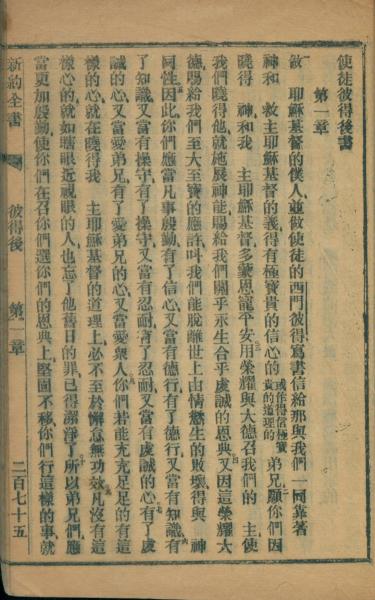 使徒彼得後書
第一章
做 耶穌基督的僕人並做使徒的西門彼得寫書信給那與我們一同靠著
神和 救主耶穌基督的義得有極寶貴的信心的 或作得信極寶貴的道理的 弟兄願你們因
曉得 神和我 主耶穌基督多蒙恩寵平安用榮耀與大德召我們的 主使
我們曉得他就施展神能賜給我們關乎永生合乎虔誠的恩典又因這榮耀大
德賜給我們至大至寶的應許叫我們能脫離世上由情慾生的敗壞得與 神
同性因此你們應當凡事慇勤有了信心又當有德行有了德行又當有知識有
了知識又當有操守有了操守又當有忍耐有了忍耐又當有虔誠的心有了虔
誠的心又當愛弟兄有了愛弟兄的心又當愛衆人你們若能充充足足的有這
樣的心就在曉得我 主耶穌基督的道理上必不至於懈怠無功效凡沒有這
樣心的就如瞎眼近視眼的人也忘了他舊日的罪已得潔淨了所以弟兄們應
當更加慇勤使你們在召你們選你們的恩典上堅固不移你們行這樣的事就
新約全書 彼得後 第一章 二百七十五